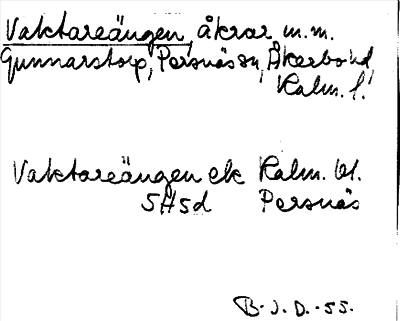 Vaktareängen, åkrar m.m.
Gunnarstorp, Persnäs sn, Åkerbo hd,
Kalm. l.
Vaktareängen ek Kalm. bl.
5H5d Persnäs
B.J.D.-55.